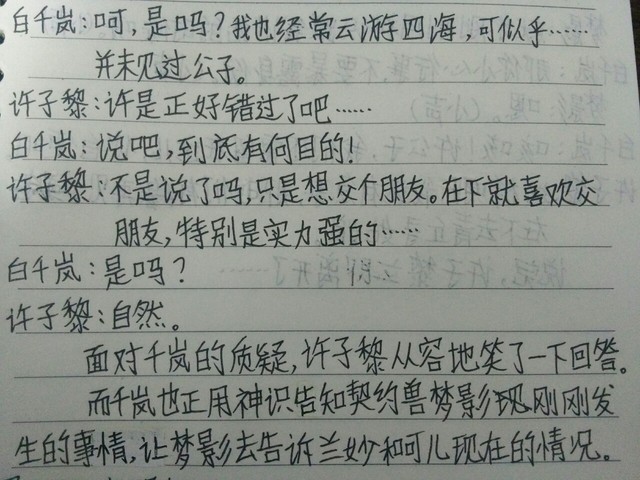 白千岚:呵,是吗?我也经常云游四海,可似乎……
并未见过公子。
许子黎:许是正好错过了吧……
白千岚:说吧,到底有何目的!
许子黎:不是说了吗,只是想交个朋友。在下就喜欢交
朋友,特别是实力强的……
白千岚:是吗?
许子黎:自然。
面对千岚的质疑,许子黎从容地笑了一下回答。
而千岚也正用神识告知契约兽梦影现刚刚发
生的事情,让梦影去告诉兰妙和可儿现在的情况。